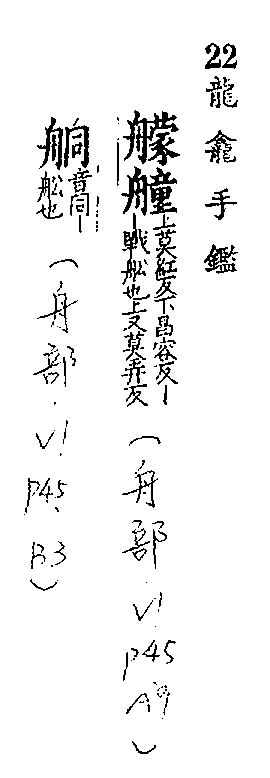 22龍龕手鑑
艨艟上莫紅反下昌容反｜｜戰船也上又莫弄反(舟部.V!P45A9)
䑺音同｜船也(舟部.V!P45、B3)